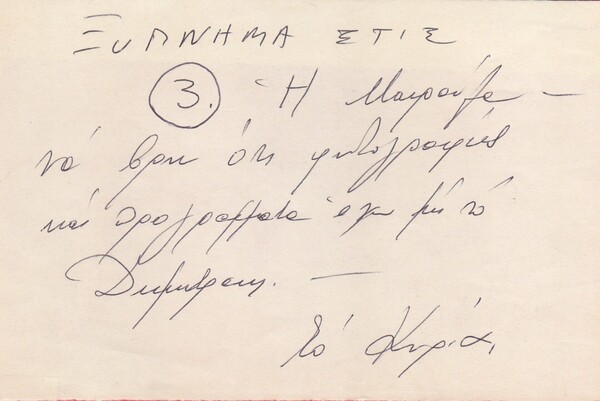 ΞΥΠΝΗΜΑ ΣΤΙΣ
3. Ἡ Μαιρούλα —
νά βρη ὅτι φωτογραφίες
καί προγράμματα ἔχω μέ τό
Δημητράκη. —
τό Κυριά